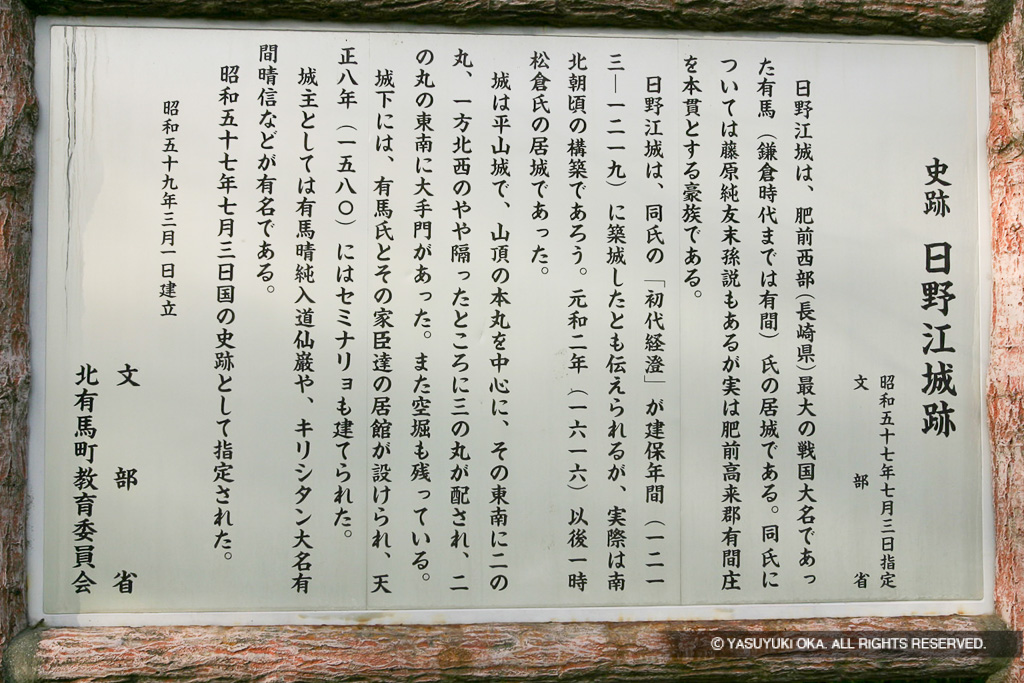 史跡 日野江城跡
昭和五十七年七月三日指定
文部省
日野江城は、肥前西部(長崎県)最大の戦国大名であっ
た有馬(鎌倉時代までは有間)氏の居城である。同氏に
ついては藤原純友末孫説もあるが実は肥前高来郡有間庄
を本貫とする豪族である。
日野江城は、同氏の「初代経澄」が建保年間(一二一
三―一二一九)に築城したとも伝えられるが、実際は南
北朝頃の構築であろう。元和二年(一六一六)以後一時
松倉氏の居城であった。
城は平山城で、山頂の本丸を中心に、その東南に二の
丸、一方北西のやや隔ったところに三の丸が配され、二
の丸の東南に大手門があった。また空堀も残っている。
城下には、有馬氏とその家臣達の居館が設けられ、天
正八年(一五八〇)にはセミナリョも建てられた。
城主としては有馬晴純入道仙巌や、キリシタン大名有
間晴信などが有名である。
昭和五十七年七月三日国の史跡として指定された。
昭和五十九年三月一日建立
文部省
北有馬町教育委員会
© YASUYUKI OKA. ALL RIGHTS RESERVED.